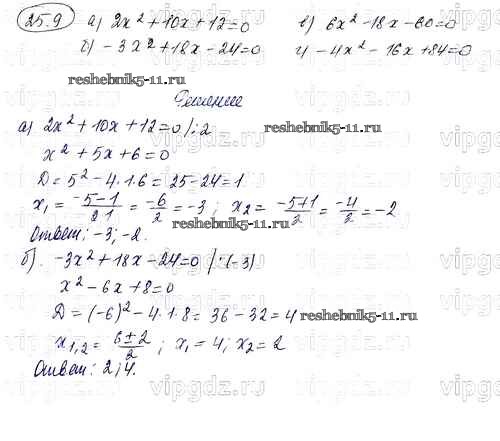 25.9 а) 2x² + 10x + 12 = 0 в) 6x² - 18x - 60 = 0
б) -3x² + 18x - 24 = 0 г) -4x² - 16x + 84 = 0
reshebnik5-11.ru
Решение
а) 2x² + 10x + 12 = 0 /:2 reshebnik5-11.ru
x² + 5x + 6 = 0
D = 5² - 4·1·6 = 25 - 24 = 1
x₁ = (-5-1)/(2·1) = -6/2 = -3; x₂ = (-5+1)/2 = -4/2 = -2
reshebnik5-11.ru
Ответ: -3; -2.
б). -3x² + 18x - 24 = 0 /:(-3)
x² - 6x + 8 = 0
D = (-6)² - 4·1·8 = 36 - 32 = 4 reshebnik5-11.ru
x₁,₂ = (6±2)/2; x₁ = 4; x₂ = 2
Ответ: 2; 4.
vipgdz.ru vipgdz.ru vipgdz.ru